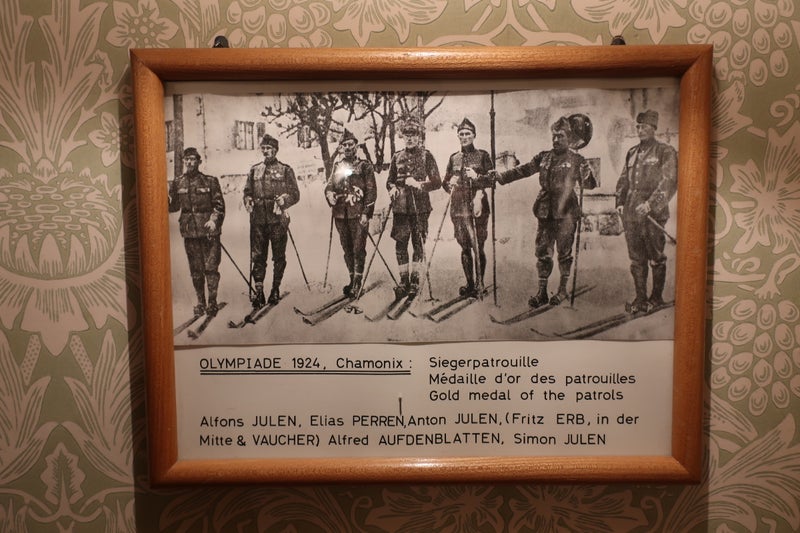 OLYMPIADE 1924, Chamonix : Siegerpatrouille
Médaille d'or des patrouilles
Gold medal of the patrols
Alfons JULEN, Elias PERREN, Anton JULEN, (Fritz ERB, in der
Mitte & VAUCHER) Alfred AUFDENBLATTEN, Simon JULEN